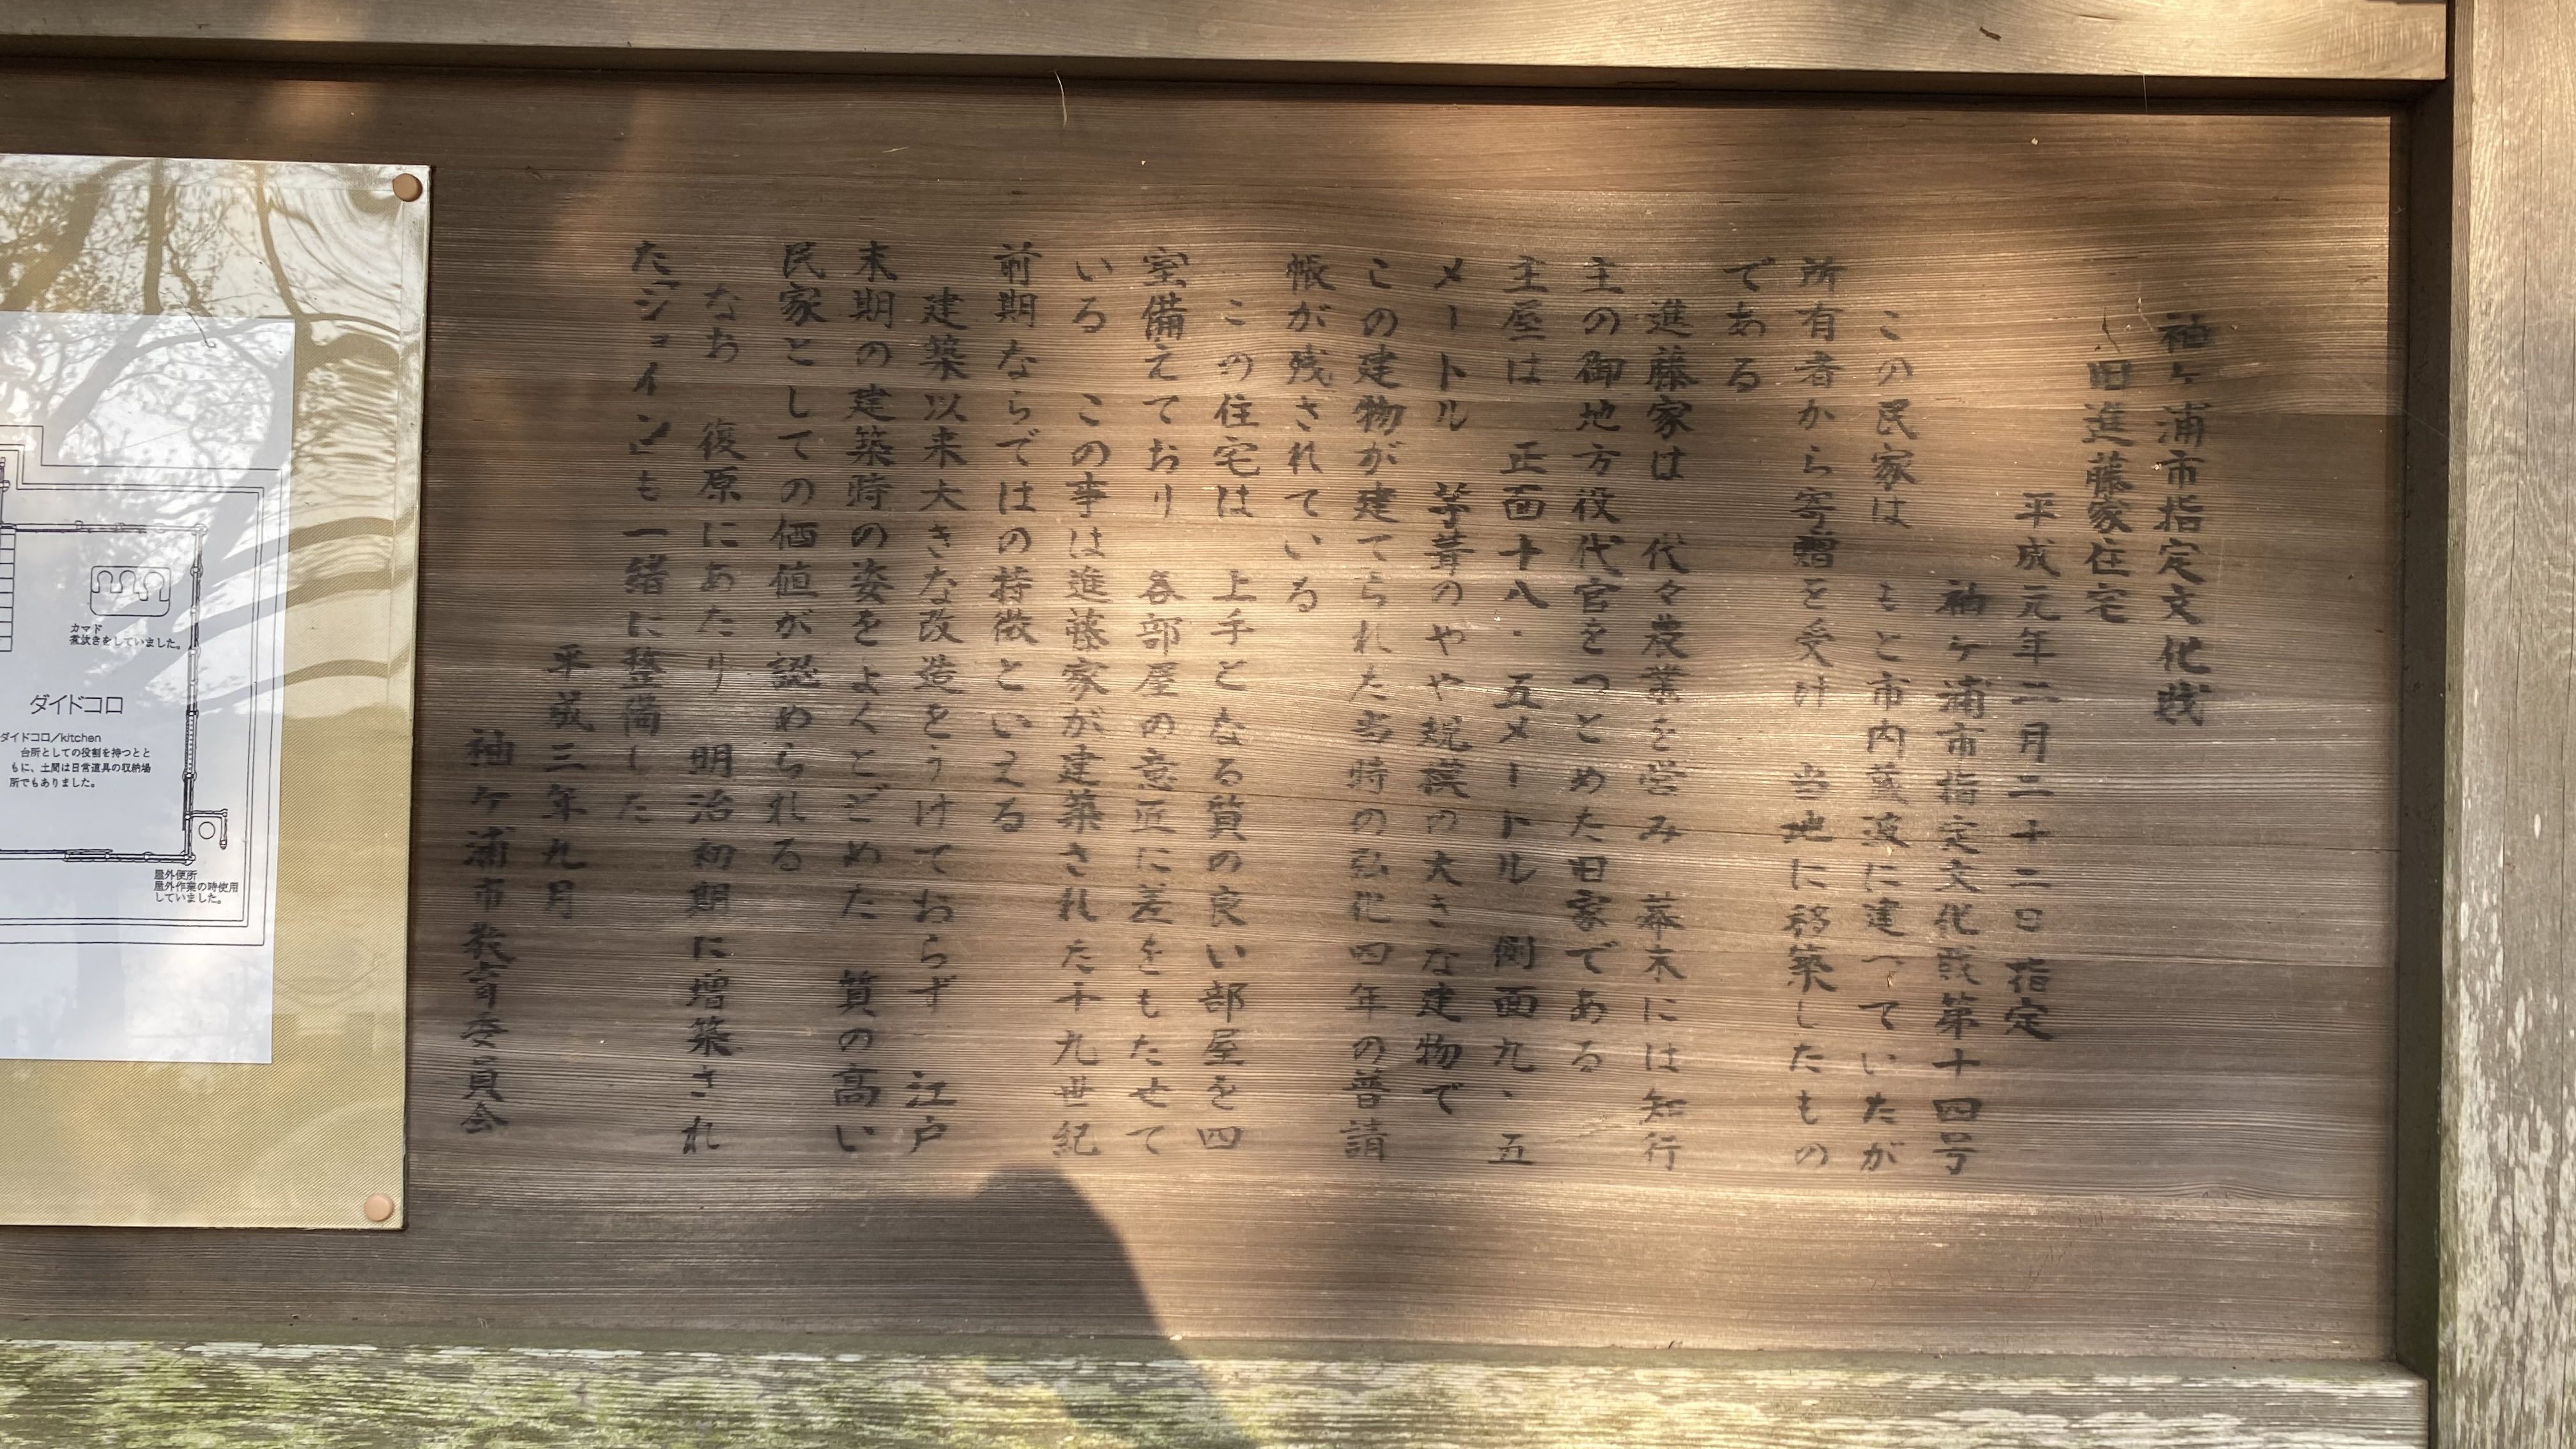 袖ヶ浦市指定文化戝
旧進藤家住宅
平成元年二月二十二日指定
袖ヶ浦市指定文化戝第十四号
この民家は もと市内蔵波に建っていたが
所有者から寄贈を受け 当地に移築したもの
である
進藤家は 代々農業を営み 幕末には知行
主の御地方役代官をつとめた旧家である
主屋は 正面十八・五メートル 側面九・五
メートル 茅葺のやや規模の大きな建物で
この建物が建てられた当時の弘化四年の普請
帳が残されている
この住宅は 上手となる質の良い部屋を四
室備えており 各部屋の意匠に差をもたせて
いる この事は進藤家が建築された十九世紀
前期ならではの特徴といえる
建築以来大きな改造をうけておらず 江戸
末期の建築時の姿をよくとどめた 質の高い
民家としての価値が認められる
なお 復原にあたり 明治初期に増築され
た「ジョイン」も一緒に整備した
平成三年九月
袖ヶ浦市教育委員会
カマド
煮炊きをしていました。
ダイドコロ
ダイドコロ/kitchen
台所としての役割を持つとと
もに、土間は日常道具の収納場
所でもありました。
屋外便所
屋外作業の時使用
していました。